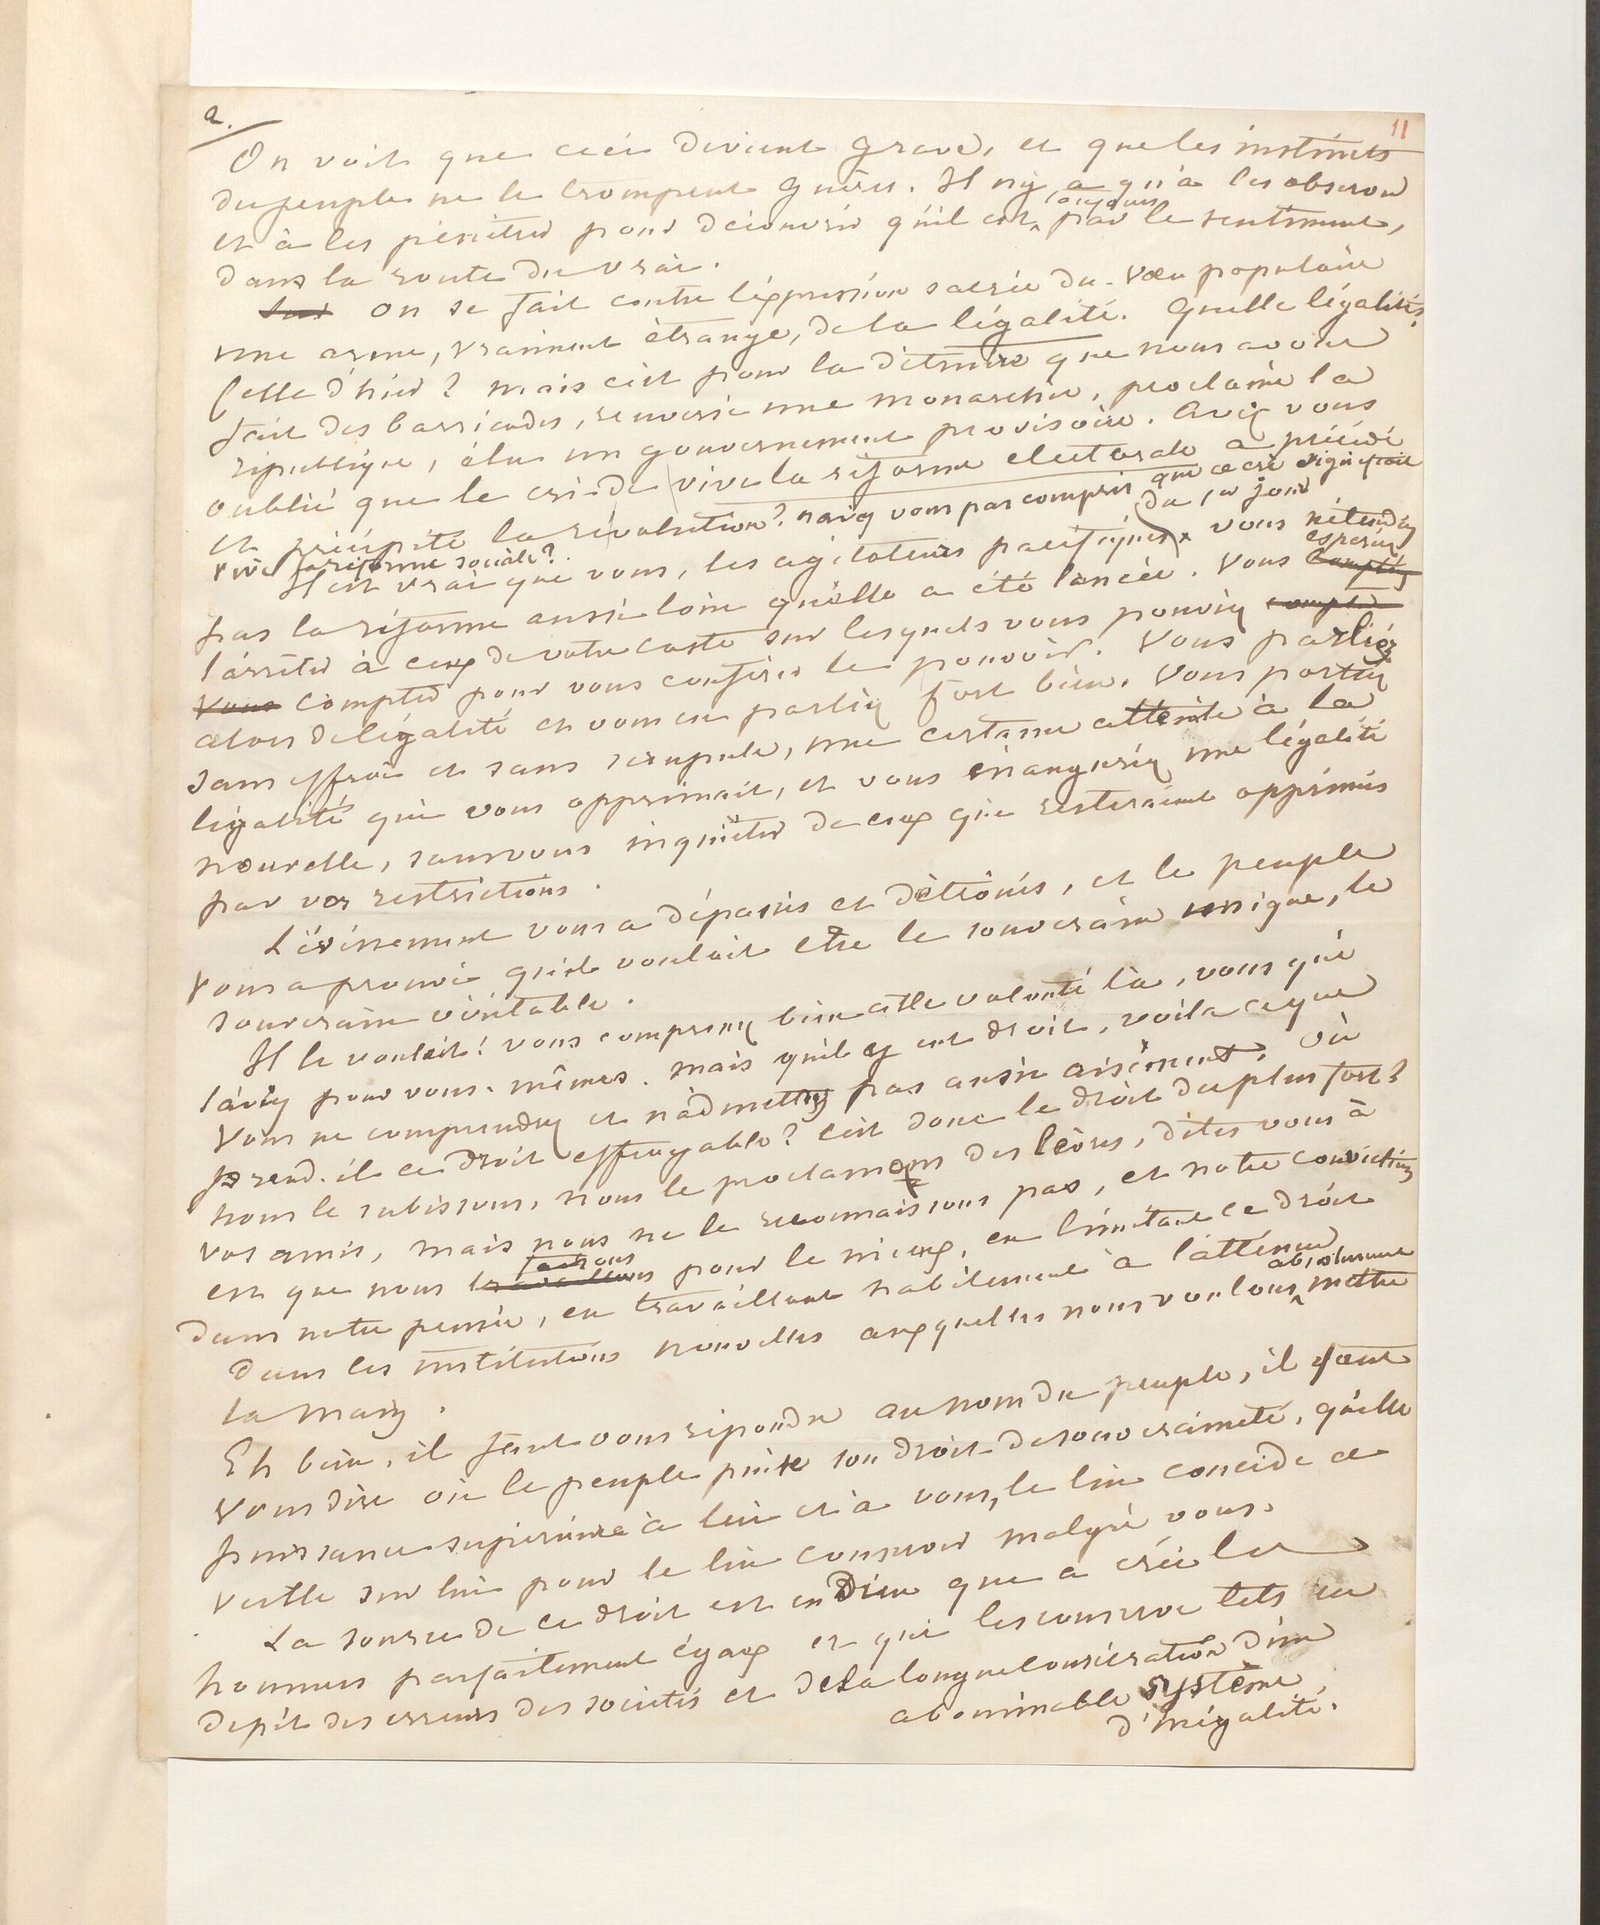 2.
11
On voit que ceci devient grave, et que les instincts
du peuple ne le trompent guères. Il n'y a qu'à les observer
et à les pénétrer pour découvrir qu'il est toujours par le sentiment,
dans la route du vrai.
On se fait contre l'expression sacrée du vœu populaire
une arme, vraiment étrange, de la légalité. Quelle légalité?
Celle d'hier? mais c'est pour la détruire que nous avons
fait des barricades, renversé une monarchie, proclamé la
république, élu un gouvernement provisoire. Avez vous
oublié que le cri de vive la réforme électorale a précédé
et précipité la révolution? n'avez vous pas compris que ce cri signifiait
vive la réforme sociale?
Il est vrai que vous, les agitateurs pacifiques du 1er jour vous n'étendiez
pas la réforme aussi loin qu'elle a été lancée. Vous comptiez espériez
l'arrêter à ceux de votre caste sur lesquels vous pouviez compter
vous compter pour vous conférer le pouvoir. Vous parliez
alors de légalité et vous en parliez fort bien. Vous portiez
sans effroi et sans scrupule, une certaine atteinte à la
légalité qui vous opprimait, et vous inauguriez une légalité
nouvelle, sans vous inquiéter de ceux qui resteraient opprimés
par vos restrictions.
L'évènement vous a dépassés et détrônés, et le peuple
vous a prouvé qu'il voulait être le souverain unique, le
souverain véritable.
Il le voulait! vous comprenez bien cette volonté là, vous qui
l'aviez pour vous-mêmes. mais qu'il y eut droit, voilà ce que
vous ne comprendrez et n'admettez pas aussi aisément. Où
prend-il ce droit effroyable? c'est donc le droit du plus fort?
nous le subissons, nous le proclamons des lèvres, dites vous à
vos amis, mais nous ne le reconnaissons pas, et notre conviction
est que nous travaillons ferons pour le mieux, en limitant ce droit
dans notre pensée, en travaillant habilement à l'atténuer
dans les institutions nouvelles auxquelles nous voulons absolument mettre
la main.
Eh bien, il faut vous répondre au nom du peuple, il faut
vous dire où le peuple puise son droit de souveraineté, quelle
puissance supérieure à lui et à vous, le lui concède et
veille sur lui pour le lui conserver malgré vous.
La source de ce droit est en Dieu qui a créé les
hommes parfaitement égaux et qui les conserve tels en
dépit des erreurs des sociétés et de la longue consécration d'un
abominable système
d'inégalité.